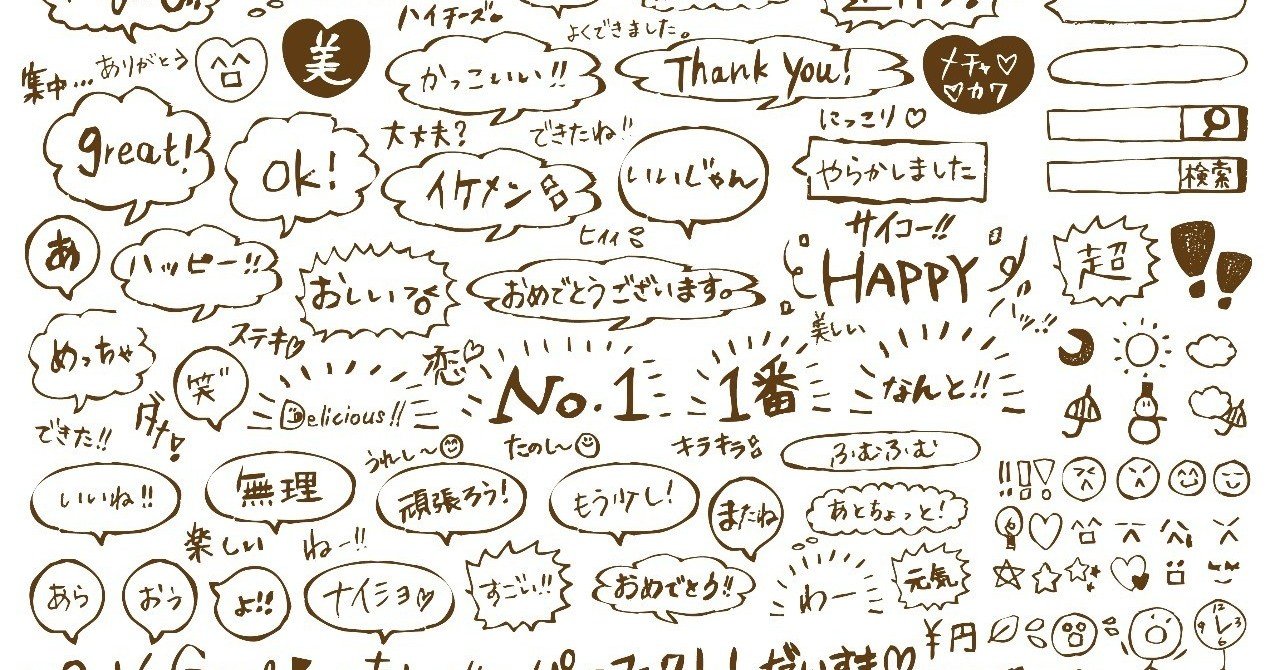 ハイチーズ。
よくできました。
集中...
ありがとう
美
かっこいい!!
Thank you!
メチャ♡
♡カワ
great!
ok!
大丈夫?
できたね!!
にっこり♡
イケメン
いいじゃん
やらかしました
検索
あ
ハッピー!!
おしい
ヒィィ
おめでとうございます。
サイコー!!
HAPPY
超
めっちゃ
ステキ♡
笑
Delicious!!
恋
No.1
1番
美しい
なんと!!
できた!!
ダメ!
うれし〜
たのし〜
キラキラ
ふむふむ
いいね!!
無理
頑張ろう!
もう少し!
またね
あとちょっと!
楽しい
ねー!!
あら
おう
よ!!
ナイショ♡
すごい!!
おめでとう!!
わー
元気
¥円
12
3
6
9
だいすき♡